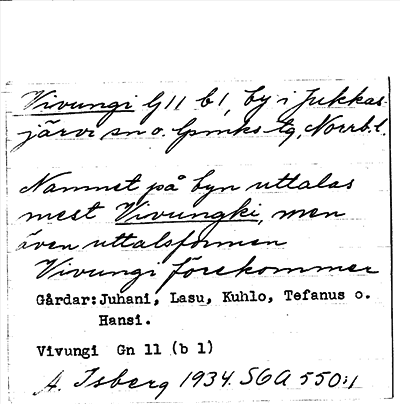 Vivungi G 11 b 1, by i Jukkas-
järvi sn o. lpmks tg, Norrb. l.
Namnet på byn uttalas
mest Vivungki, men
även uttalsformen
Vivungi förekommer
Gårdar: Juhani, Lasu, Kuhlo, Tefanus o.
Hansi.
Vivungi Gn 11 (b 1)
A. Isberg 1934. SOA 550:1